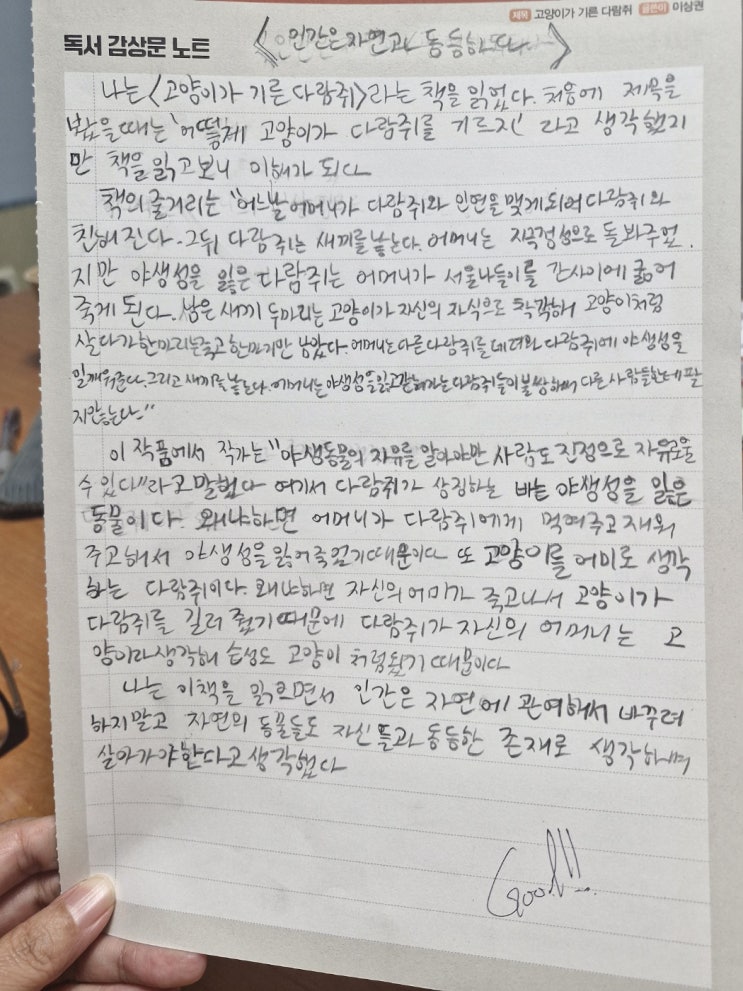 제목 고양이가 기른 다람쥐 글쓴이 이상권
독서 감상문 노트 <인간은 자연과 동등하다>
나는 <고양이가 기른 다람쥐>라는 책을 읽었다. 처음에 제목을
봤을때는 '어떻게 고양이가 다람쥐를 기르지' 라고 생각했지
만 책을 읽고보니 이해가 되다
책의 줄거리는 "어느날 어머니가 다람쥐와 인연을 맺게되어 다람쥐와
친해진다. 그뒤 다람쥐는 새끼를 낳는다. 어머니는 지극정성으로 돌봐주었
지만 야생성을 잃은 다람쥐는 어머니가 서울나들이를 간사이에 굶어
죽게 된다. 남은 새끼 두마리는 고양이가 자신의 자식으로 착각해 고양이처럼
살다가 한마리는죽고 한마리만 남았다. 어머니는 다른 다람쥐를 데려와 다람쥐에 야생성을
일깨워준다. 그리고 새끼를 낳는다. 어머니는 야생성을 잃고 변해가는 다람쥐들이 불쌍해 다른 사람들한테 팔
지않는다."
이 작품에서 작가는 "야생동물의 자유를 알아야만 사람도 진정으로 자유로울
수 있다"라고 말했다 여기서 다람쥐가 상징하는 바는 야생성을 잃은
동물이다. 왜냐하면 어머니가 다람쥐에게 먹여주고 재워
주고해서 야생성을 잃어 죽었기 때문이다 또 고양이를 어미로 생각
하는 다람쥐이다. 왜냐하면 자신의 어미가 죽고나서 고양이가
다람쥐를 길러 줬기때문에 다람쥐가 자신의 어머니는 고
양이라 생각해 습성도 고양이 처럼됬기 때문이다
나는 이책을 읽으면서 인간은 자연에 관여해서 바꾸려
하지말고 자연의 동물들도 자신들과 동등한 존재로 생각하며
살아가야한다고 생각했다
Good!!